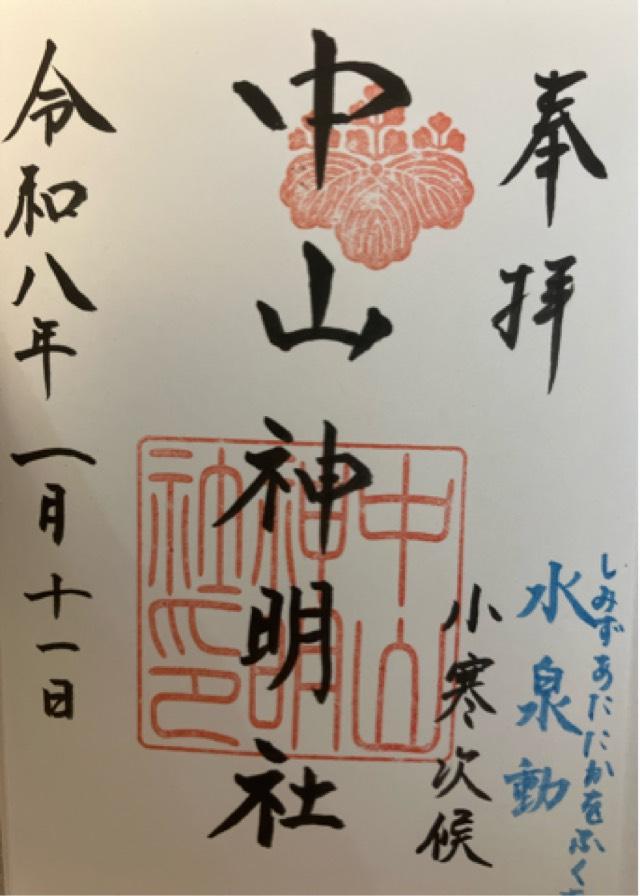 奉拝
しみずあたたかをふく
水泉動
小寒次候
中山神明社
中山
神明
社印
令和八年一月十一日